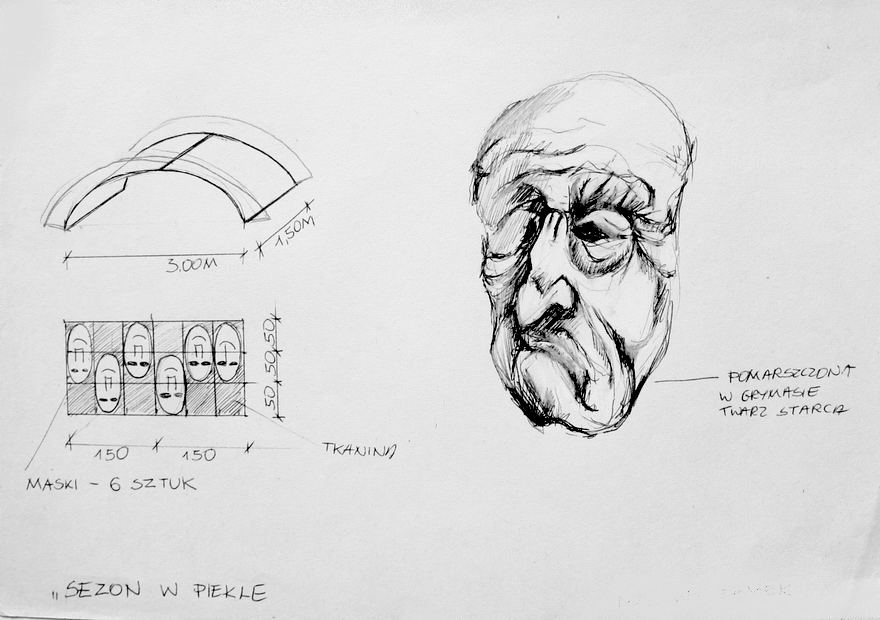 3.00M
1,50M
50 50 50
150 150
TKANINA
MASKI - 6 SZTUK
POMARSZCZONA
W GRYMASIE
TWARZ STARCA
„SEZON W PIEKLE